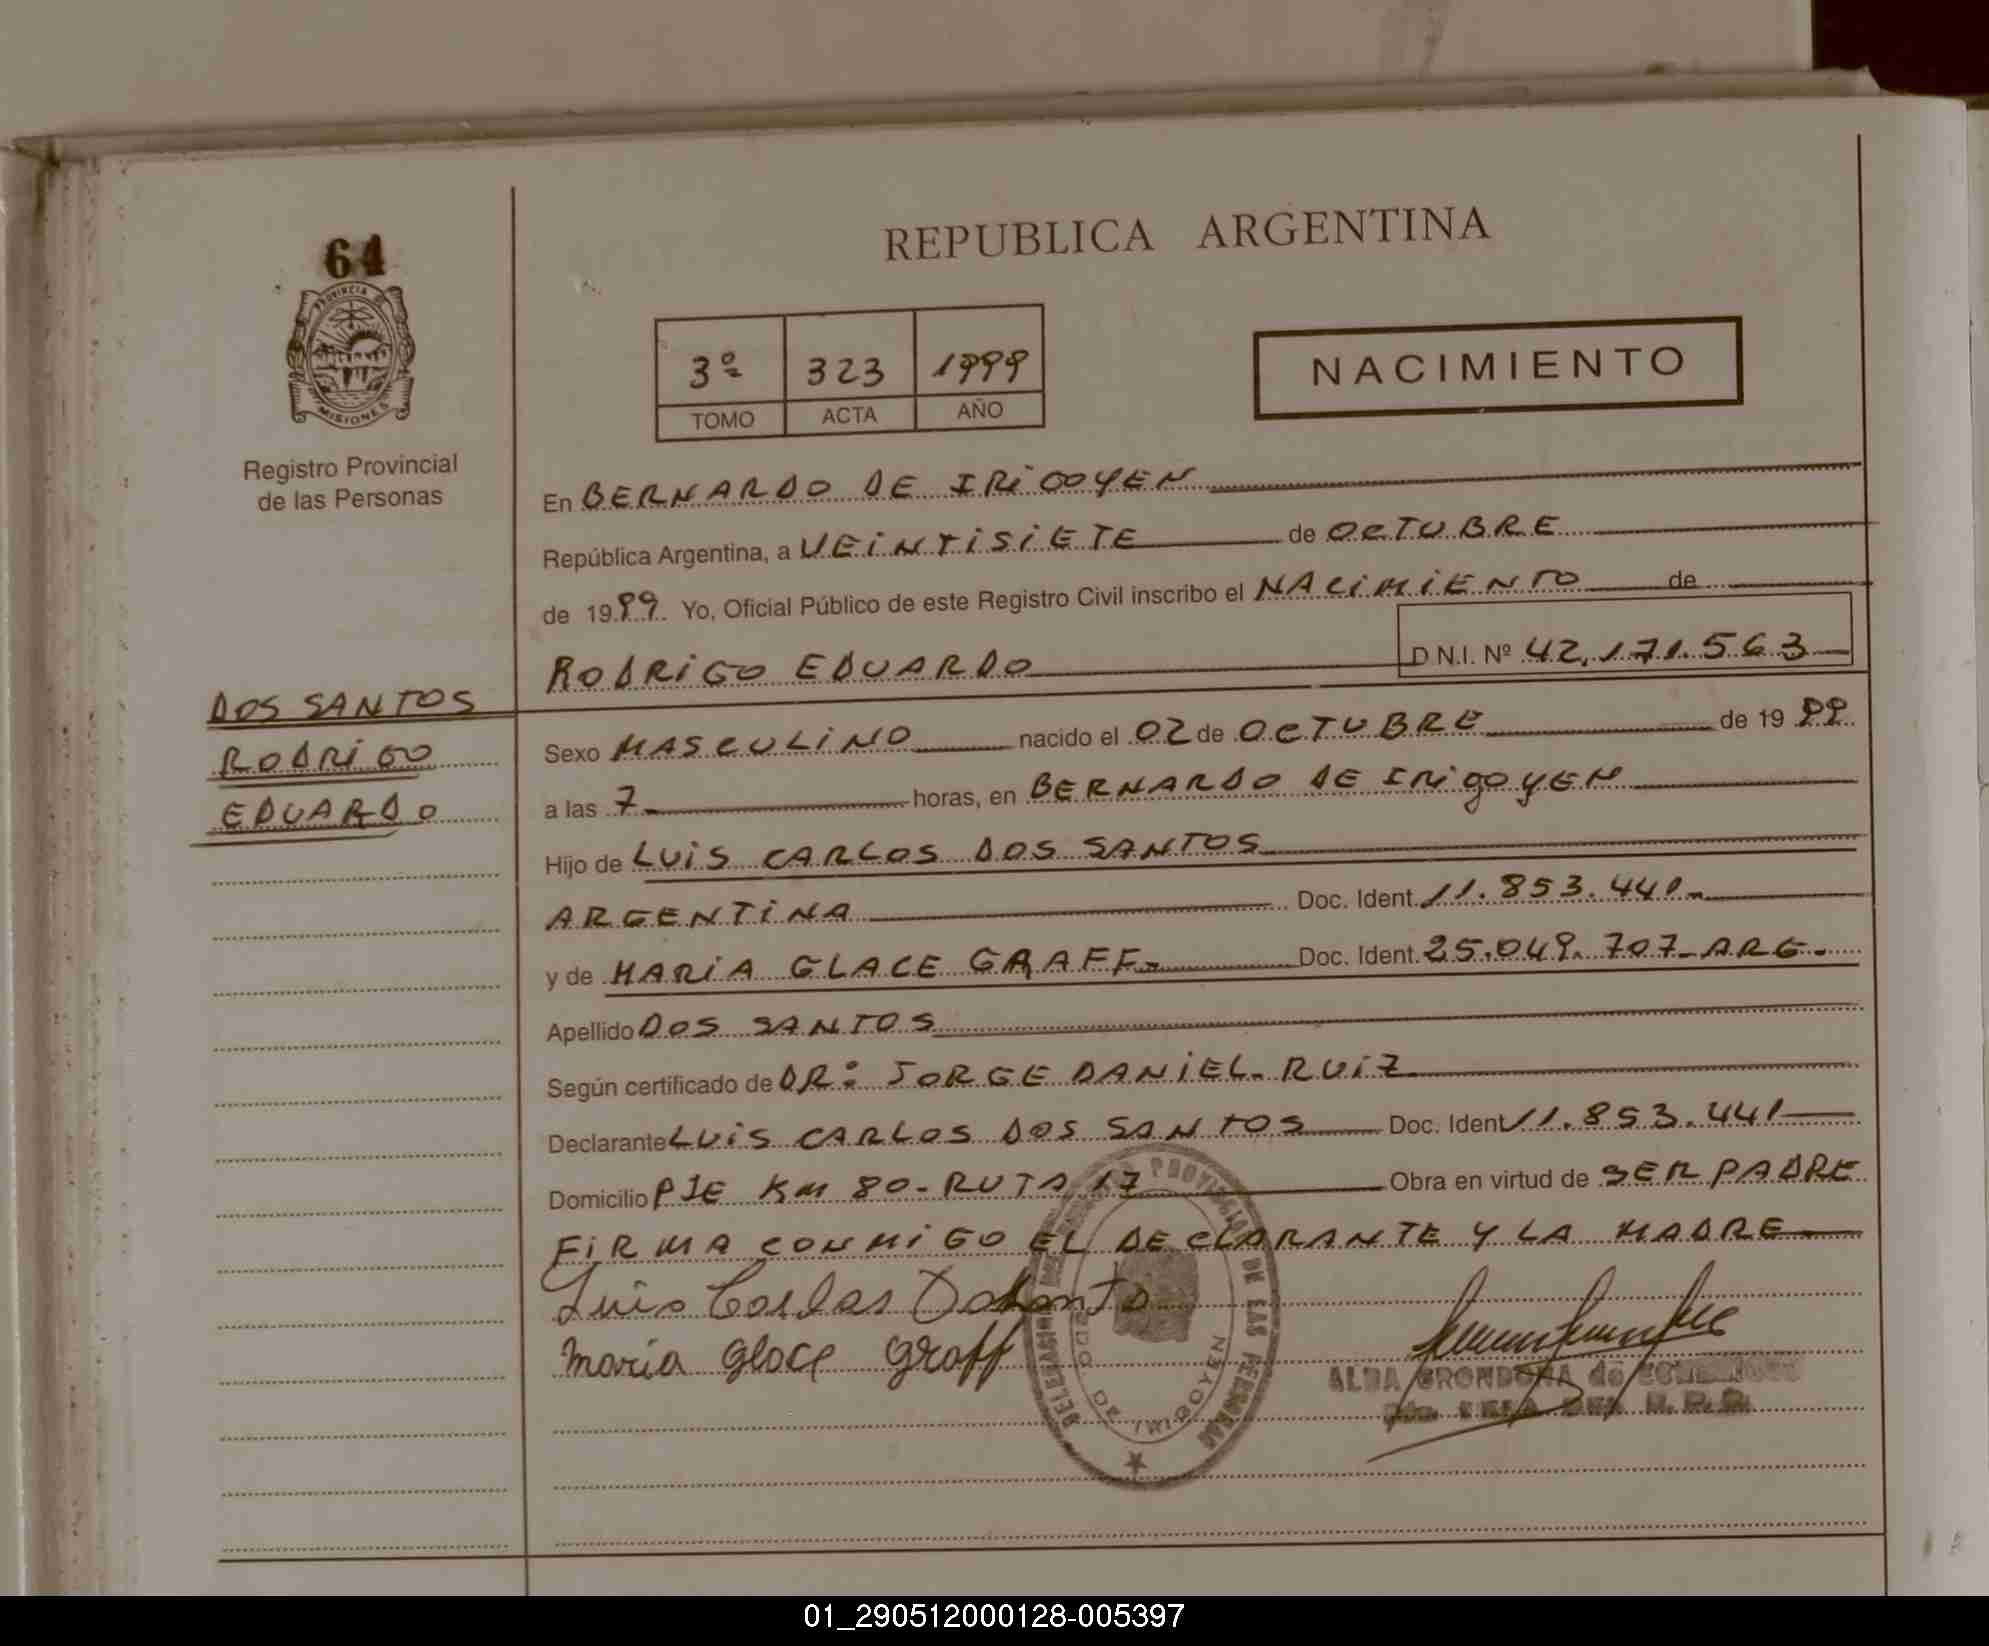 64
PROVINCIA DE
MISIONES
Registro Provincial
de las Personas
REPUBLICA ARGENTINA
3º 323 1999
TOMO ACTA AÑO
NACIMIENTO
En BERNARDO DE IRIGOYEN
República Argentina, a VEINTISIETE de OCTUBRE
de 1999. Yo, Oficial Público de este Registro Civil inscribo el NACIMIENTO de
RODRIGO EDUARDO D N.I. Nº 42.171.563
DOS SANTOS
RODRIGO
EDUARDO
Sexo MASCULINO nacido el 02 de OCTUBRE de 1999
a las 7 horas, en BERNARDO DE IRIGOYEN
Hijo de LUIS CARLOS DOS SANTOS
ARGENTINA Doc. Ident. 11.853.441-
y de MARIA GLACE GRAFF- Doc. Ident. 25.049.707-ARG.-
Apellido DOS SANTOS
Según certificado de DR: JORGE DANIEL RUIZ
Declarante LUIS CARLOS DOS SANTOS Doc. Ident 11.853.441
Domicilio PJE KM 80-RUTA 17 Obra en virtud de SER PADRE
FIRMA CONMIGO EL DECLARANTE Y LA MADRE
Luis Carlos
Maria Glace Graff
ALBA GRONDONA de
PROVINCIAL DE LAS PERSONAS
DELEGACION
BDO. DE IRIGOYEN
01_290512000128-005397